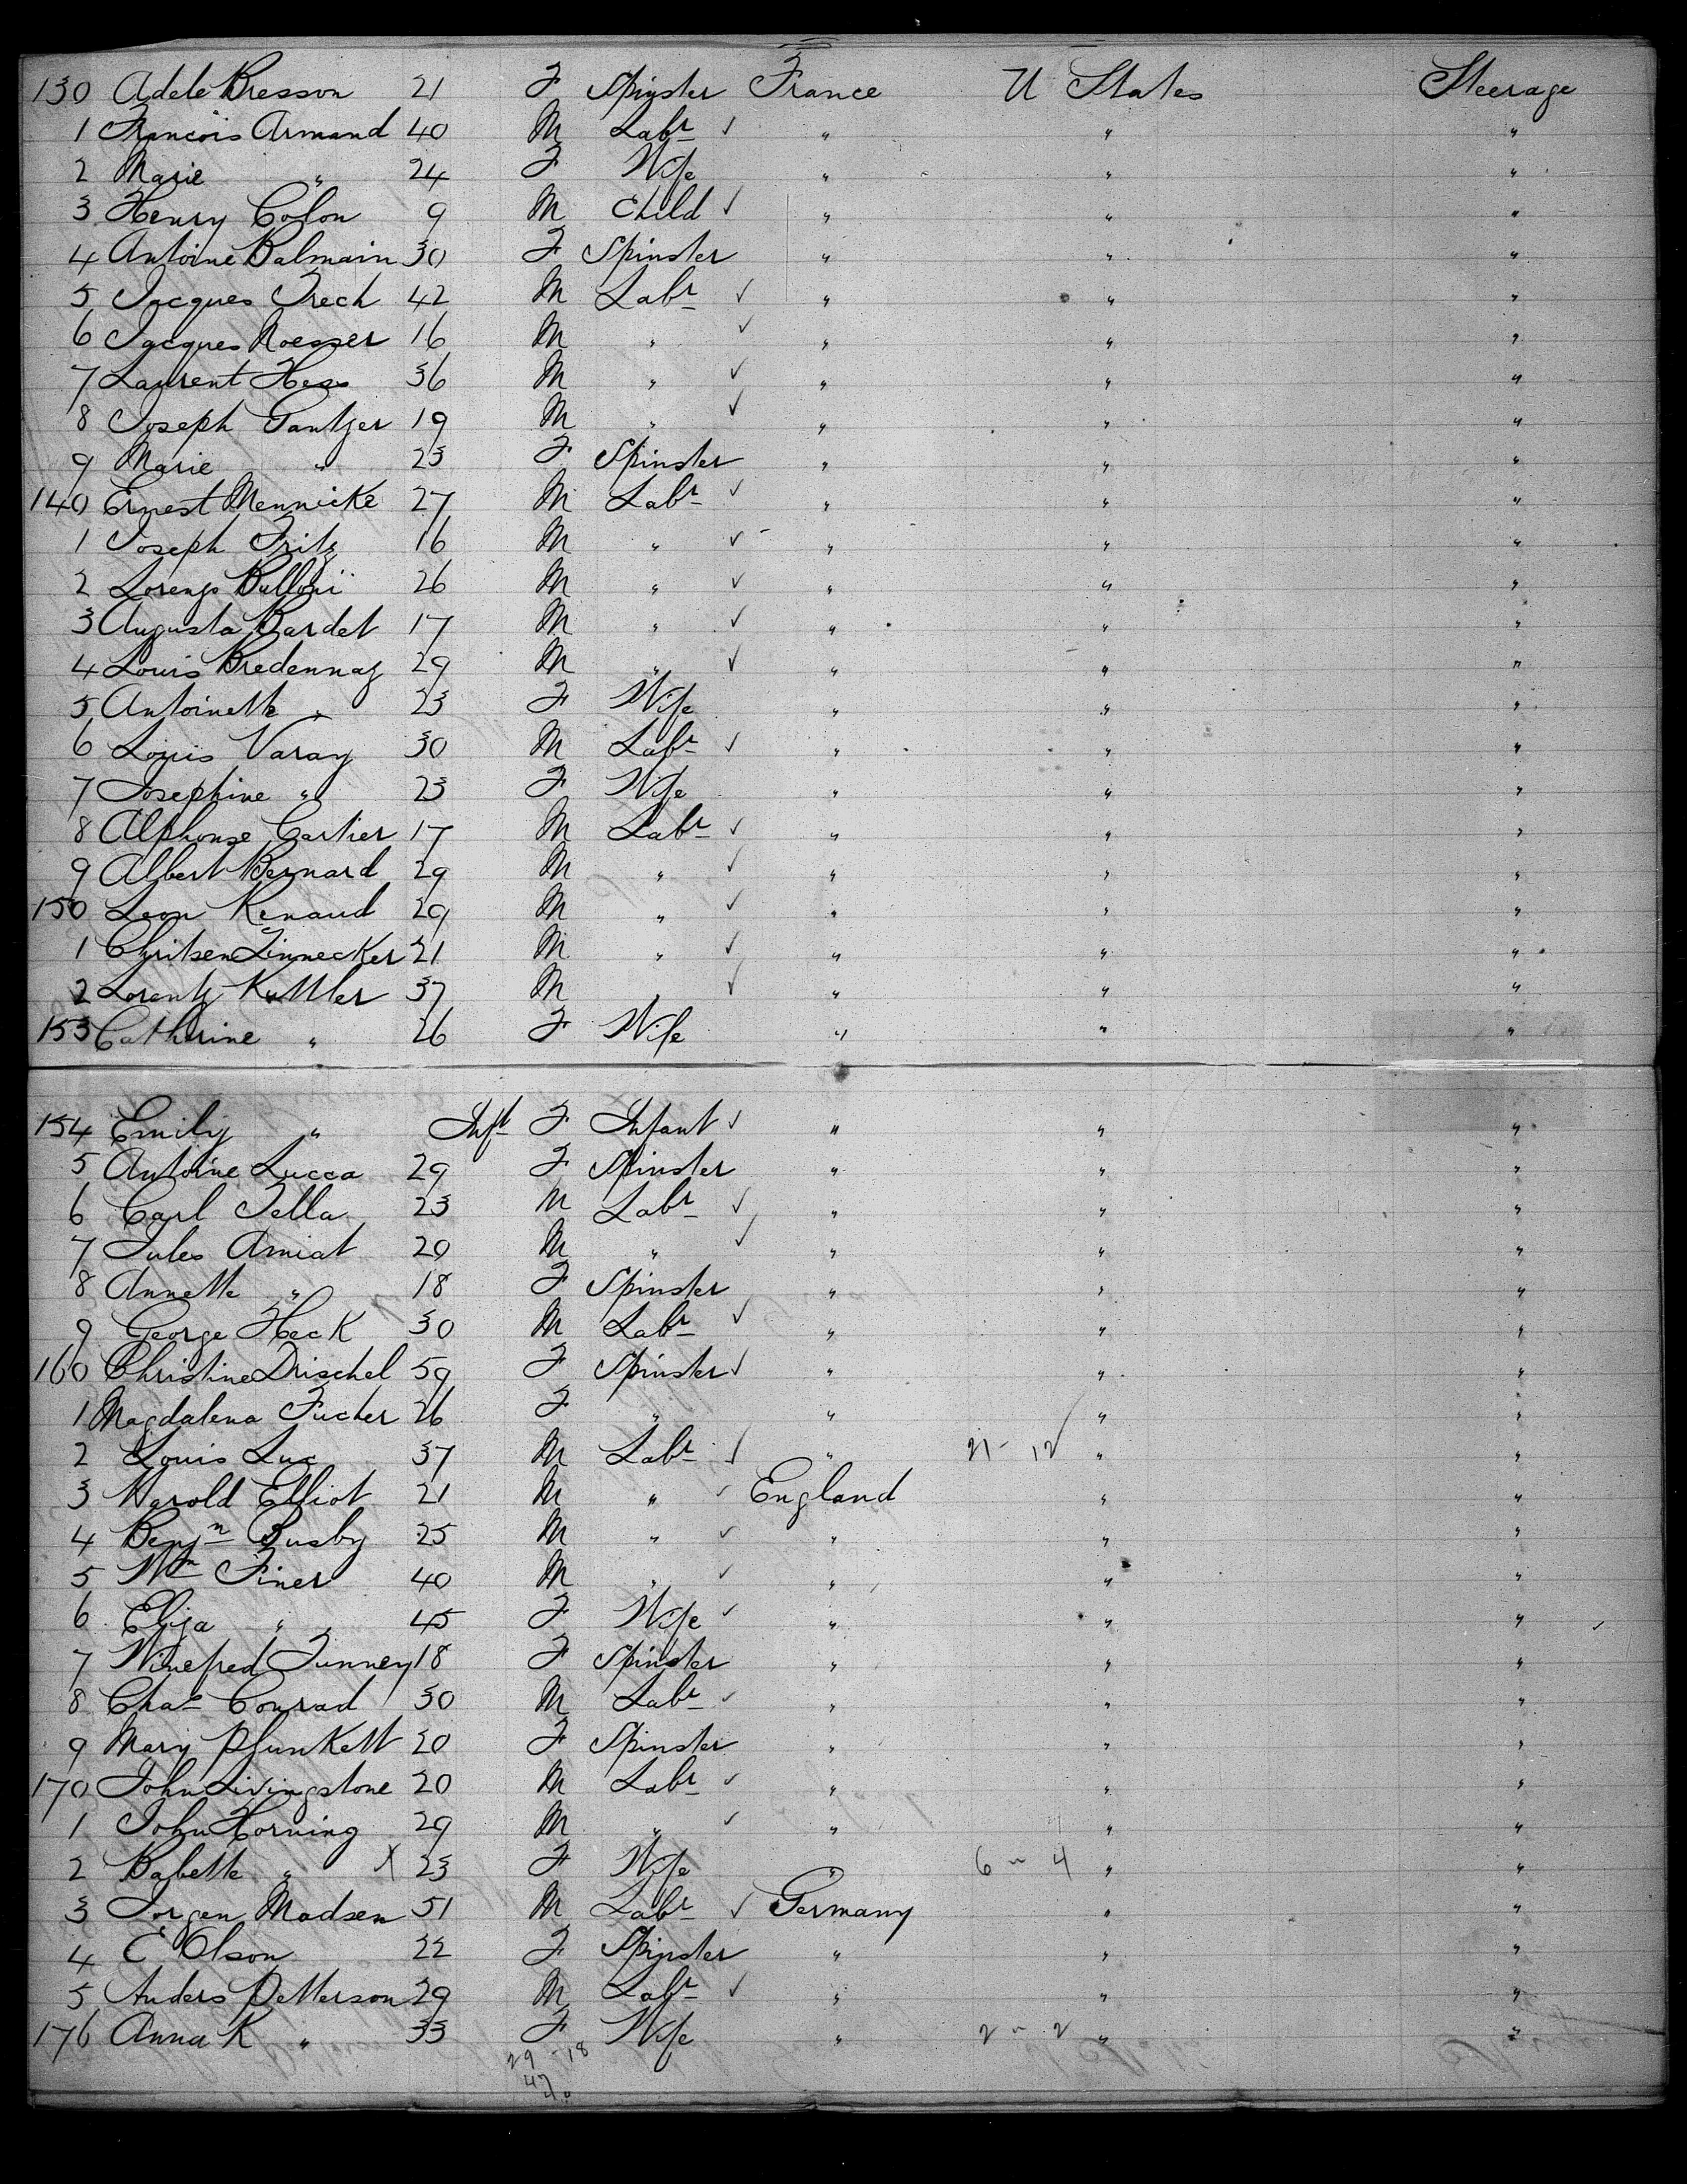 130 Adele Bresson 21 F Spinster France U States Steerage
1 Francois Armand 40 M Labr ✓ " " "
2 Marie " 24 F Wife " " "
3 Henry Colon 9 M Child ✓ " " "
4 Antoine Balmain 30 F Spinster " " "
5 Jacques Trech 42 M Labr ✓ " " "
6 Jacques Roesser 16 M " ✓ " " "
7 Laurent Hess 36 M " ✓ " " "
8 Joseph Gantzer 19 M " ✓ " " "
9 Marie " 23 F Spinster " " "
140 Ernest Mennicke 27 M Labr ✓ " " "
1 Joseph Fritz 16 M " ✓ " " "
2 Lorenzo 26 M " ✓ " " "
3 Augusta Bardet 17 M " ✓ " " "
4 Louis Bredennaz 29 M " ✓ " " "
5 Antoinette " 23 F Wife " " "
6 Louis Varay 30 M Labr ✓ " " "
7 Josephine " 23 F Wife " " "
8 Alphonse Cartier 17 M Labr ✓ " " "
9 Albert Bernard 29 M " ✓ " " "
150 Leon Renaud 29 M " ✓ " " "
1 Chritsen Zinnecker 21 M " ✓ " " "
2 Lorentz Kuttler 37 M " ✓ " " "
153 Catherine " 26 F Wife " " "
154 Emily " Inft F Infant ✓ " " "
5 Antoine Lucca 29 F Spinster " " "
6 Carl Tella 23 M Labr ✓ " " "
7 Jules Amiat 29 M " ✓ " " "
8 Annette " 18 F Spinster " " "
9 George Heck 30 M Labr ✓ " " "
160 Christine Drischel 59 F Spinster ✓ " " "
1 Magdalena Fucher 26 F " " " "
2 Louis Luc 37 M Labr ✓ " 21 - 12 " "
3 Harold Elliot 21 M " ✓ England " "
4 Benjn Busby 25 M " ✓ " " "
5 Wm Finer 40 M " ✓ " " "
6 Eliza " 45 F Wife ✓ " " "
7 Winefred Tunney 18 F Spinster " " "
8 Chas Conrad 30 M Labr ✓ " " "
9 Mary Plunkett 20 F Spinster " " "
170 John Livingstone 20 M Labr ✓ " " "
1 John Horning 29 M " ✓ " " "
2 Babette " X 23 F Wife " 6 - 4 " "
3 Jorgen Madsen 51 M Labr ✓ Germany " "
4 E Olson 22 F Spinster " " "
5 Anders Petterson 29 M Labr ✓ " " "
176 Anna K " 33 F Wife " 2 - 2 " "
29 - 18
47